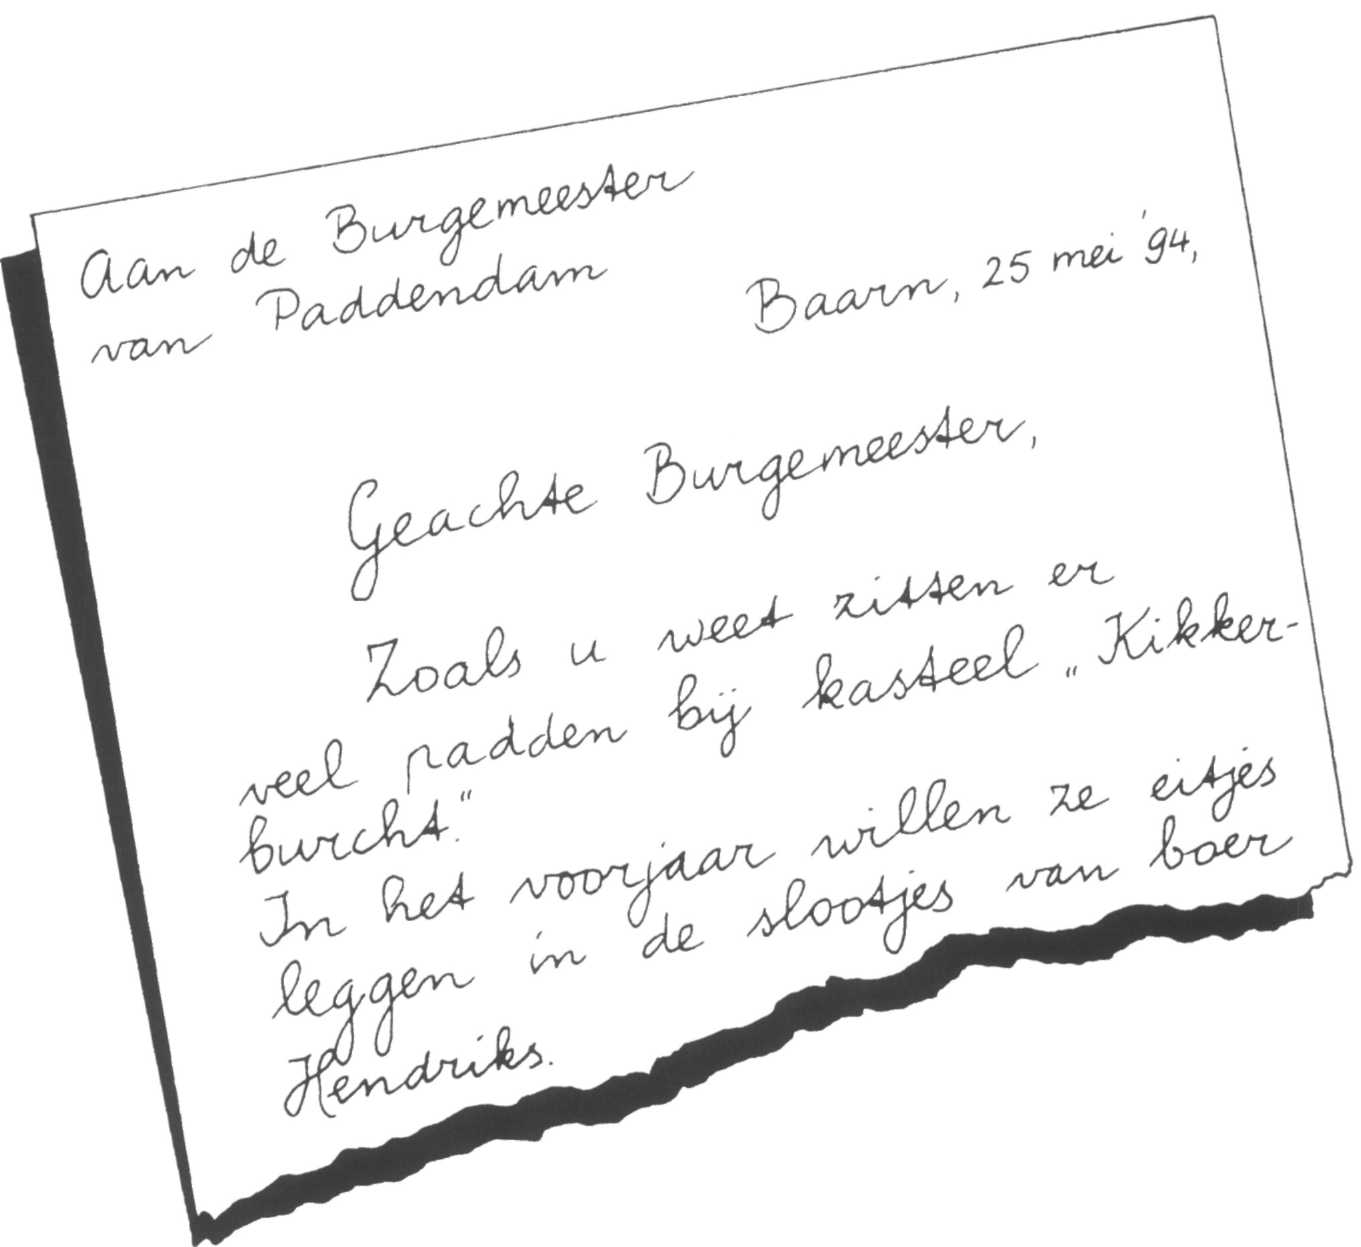 Aan de Burgemeester
van Paddendam
Baarn, 25 mei '94,
Geachte Burgemeester,
Zoals u weet zitten er
veel padden bij kasteel „Kikker-
burcht."
In het voorjaar willen ze eitjes
leggen in de slootjes van boer
Hendriks.